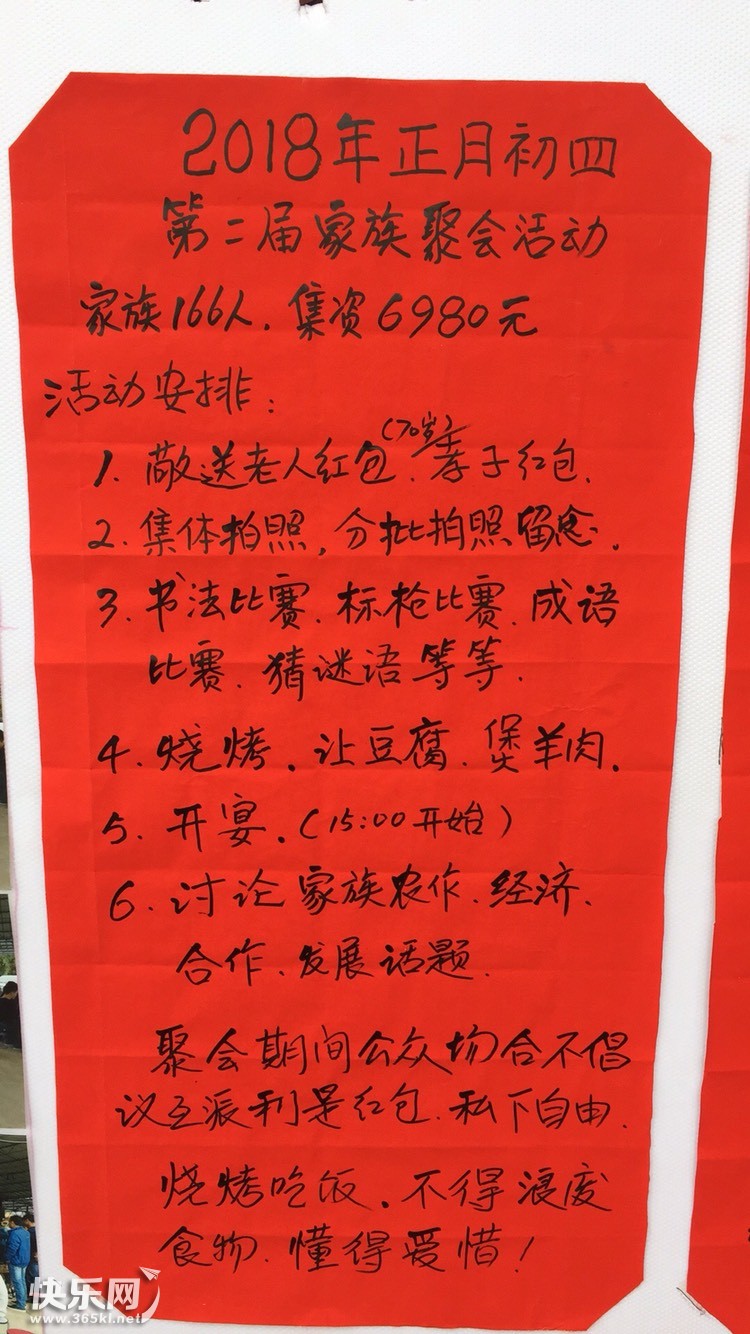 2018年正月初四
第二届家族聚会活动
家族166人.集资6980元
活动安排:
(70岁)
1.敬送老人红包、孝子红包.
2.集体拍照,分批拍照留念.
3.书法比赛、标枪比赛、成语
比赛、猜谜语等等.
4.烧烤、让豆腐、煲羊肉.
5.开宴.(15:00开始)
6.讨论家族农作、经济、
合作、发展话题.
聚会期间公众场合不倡
议互派利是红包、私下自由.
烧烤吃饭、不得浪废
食物、懂得爱惜!
快乐网
www.365kl.net